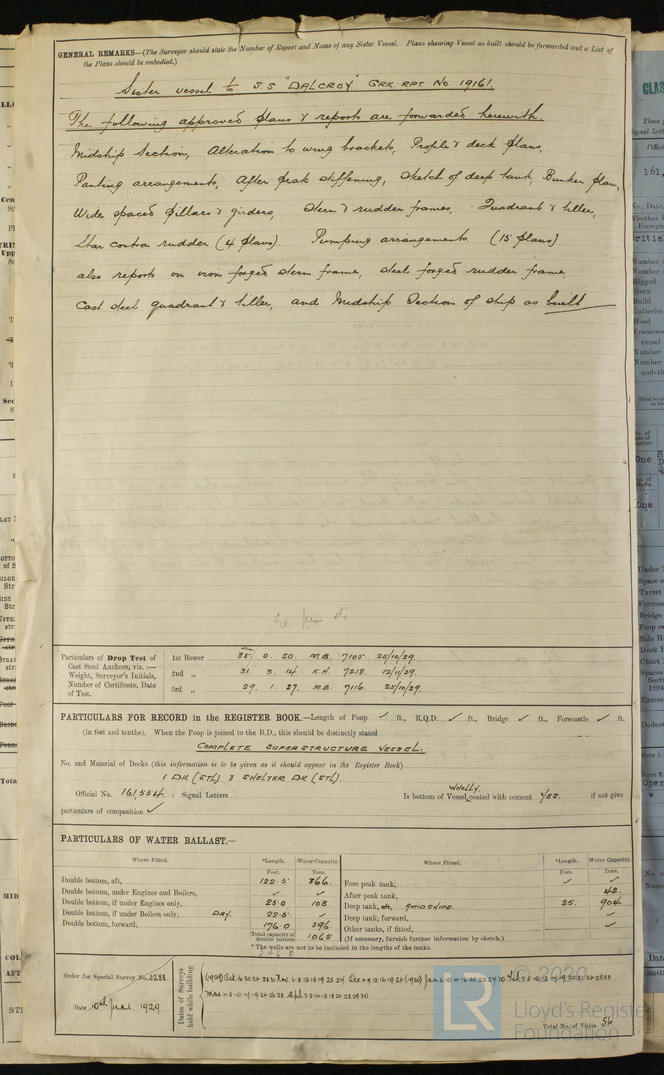 GENERAL REMARKS—(The Surveyor should state the Number of Report and Name of any Sister Vessel. Plans showing Vessel as built should be forwarded and a List of
the Plans should be embodied.)
Sister vessel to S S "DALCROY" GRK. RPT No. 19161.
The following approved plans & reports are forwarded herewith.
Midship Section, Alteration to wing brackets, Profile & deck plans,
Panting arrangements, After peak stiffening, Sketch of deep tank, Bunker plan,
Wide spaced pillars & girders, Stern & rudder frames, Quadrant & tiller,
Star contra rudder (4 plans) Pumping arrangements (15 plans)
also reports on iron forged stern frame, steel forged rudder frame,
Cast steel quadrant & tiller, and Midship Section of ship as built
Particulars of Drop Test of
Cast Steel Anchors, viz.:—
Weight, Surveyor's Initials,
Number of Certificate, Date
of Test.
1st Bower 35. 0. 20. M.B. 7105 25/10/29.
2nd „ 31. 3. 14 K.H. 7218. 12/11/29.
3rd „ 29. 1. 27. M.B. 7116. 25/10/29.
PARTICULARS FOR RECORD in the REGISTER BOOK.—Length of Poop ✓ ft., R.Q.D. ✓ ft., Bridge ✓ ft., Forecastle ✓ ft.
(in feet and tenths). When the Poop is joined to the B.D., this should be distinctly stated
COMPLETE SUPERSTRUCTURE VESSEL.
No. and Material of Decks (this information is to be given as it should appear in the Register Book)
1 DK (STL) & SHELTER DK (STL).
Official No. 161,554 : Signal Letters Is bottom of Vessel WHOLLY coated with cement YES. if not give
particulars of composition ✓
PARTICULARS OF WATER BALLAST.—
Where Fitted. *Length. Water Capacity. Where Fitted. *Length. Water Capacity.
Feet. Tons. Feet. Tons.
Double bottom, aft, 122.5 366. Fore peak tank, ✓ ✓
Double bottom, under Engines and Boilers, ✓ ✓ After peak tank, 42.
Double bottom, if under Engines only, 25.0 103. Deep tank, aft, AMIDSHIPS. 25. 904
Double bottom, if under Boilers only, DRY. 22.5 ✓ Deep tank, forward, ✓
Double bottom, forward, 176.0 596. Other tanks, if fitted, ✓
Total capacity of double bottom 1065 (If necessary, furnish further information by sketch.)
* The wells are not to be included in the lengths of the tanks.
Order for Special Survey No. 5288.
Date 10th June 1929
Dates of Surveys held while building
Total No. of Visits 54
© 2020
Lloyd's Register
Foundation
LR